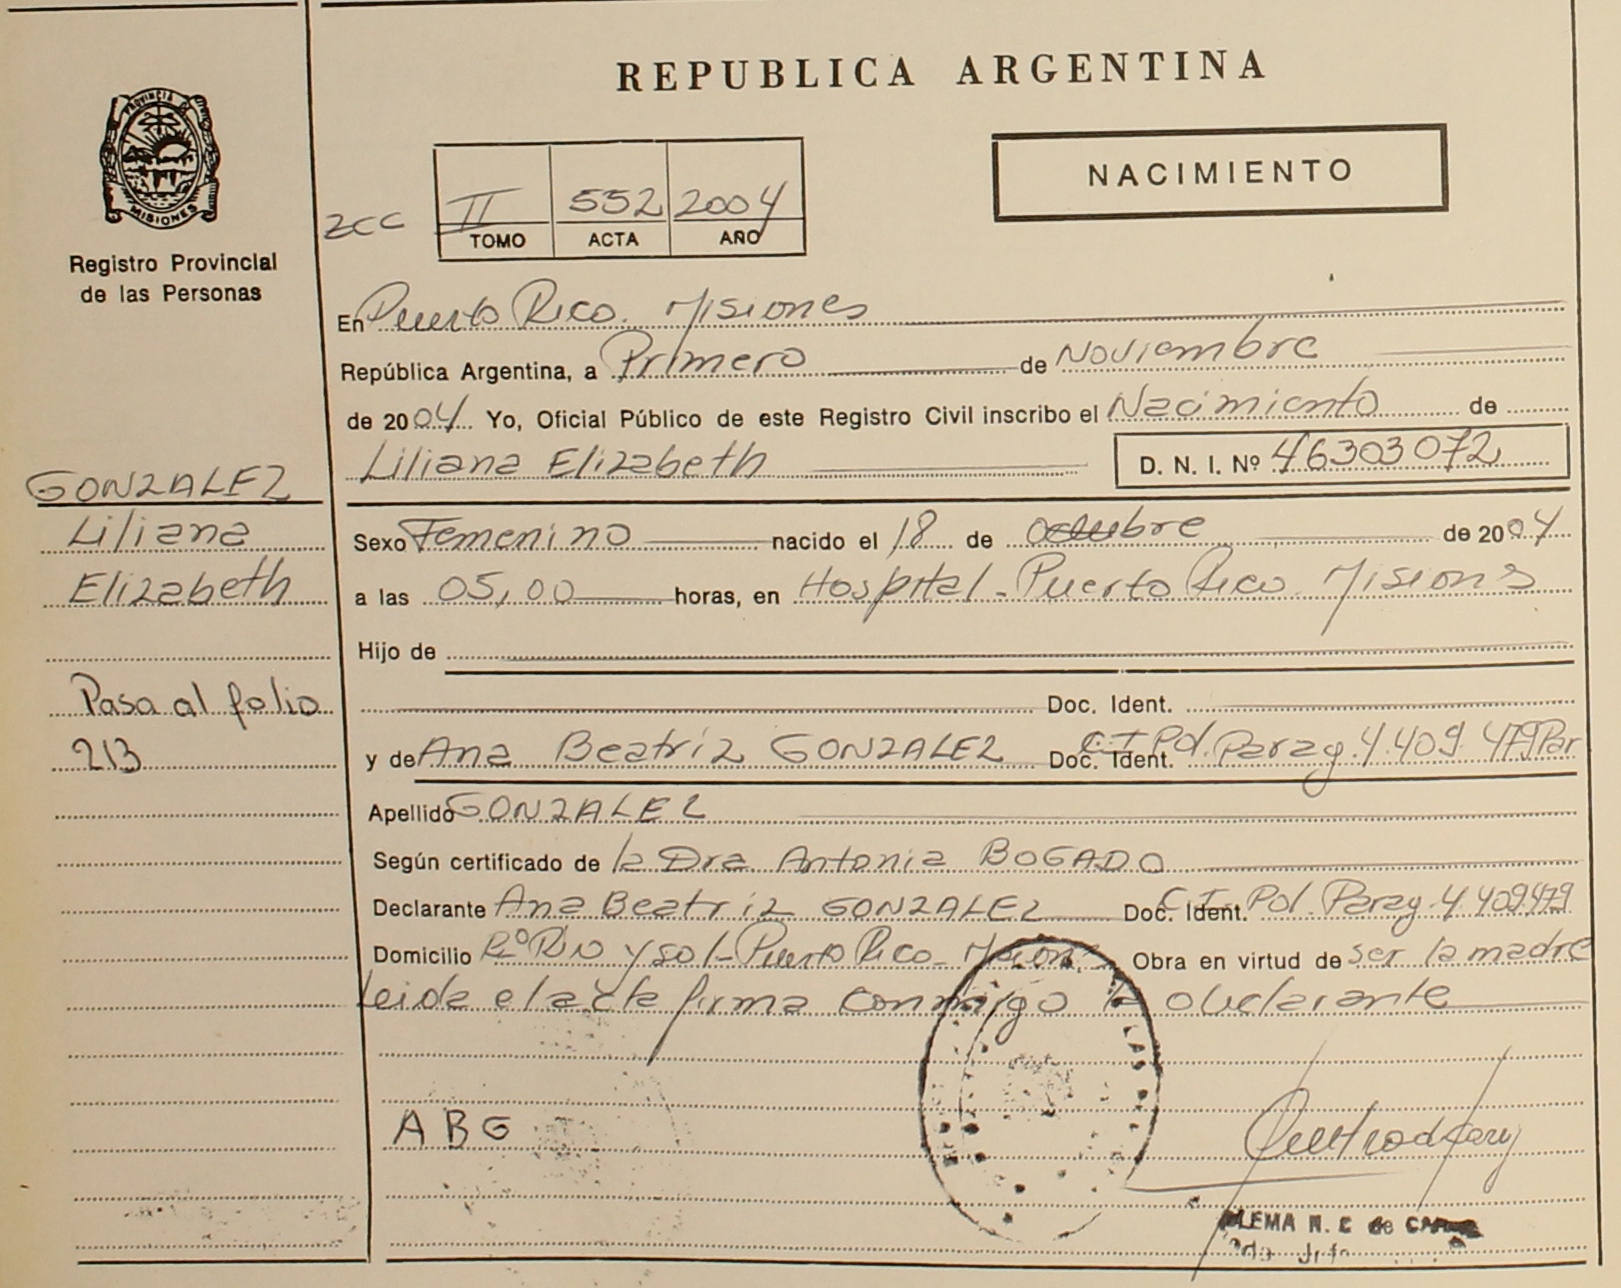 REPUBLICA ARGENTINA
PROVINCIA DE
MISIONES
Registro Provincial
de las Personas
NACIMIENTO
2CC
II 552 2004
TOMO ACTA AÑO
En Puerto Rico. Misiones
República Argentina, a Primero de Noviembre
de 2004 Yo, Oficial Público de este Registro Civil inscribo el Nacimiento de
Liliana Elizabeth D. N. I. Nº 46303072
GONZALEZ
Liliana
Elizabeth
Pasa al folio
213
Sexo Femenino nacido el 18 de Octubre de 2004
a las 05,00 horas, en Hospital - Puerto Rico Misions
Hijo de
Doc. Ident.
y de Ana Beatriz GONZALEZ Doc. Ident. C.I. Pol. Parag. 4.409.479 Par
Apellido GONZALEZ
Según certificado de la Dra. Antonia BOGADO
Declarante Ana Beatriz GONZALEZ Doc. Ident. C.I. Pol. Parag 4.409.479
Domicilio y sol - Puerto Rico - Obra en virtud de ser la madre
Leida el acta firma conmigo la declarante
ABG
LEMA N. C de